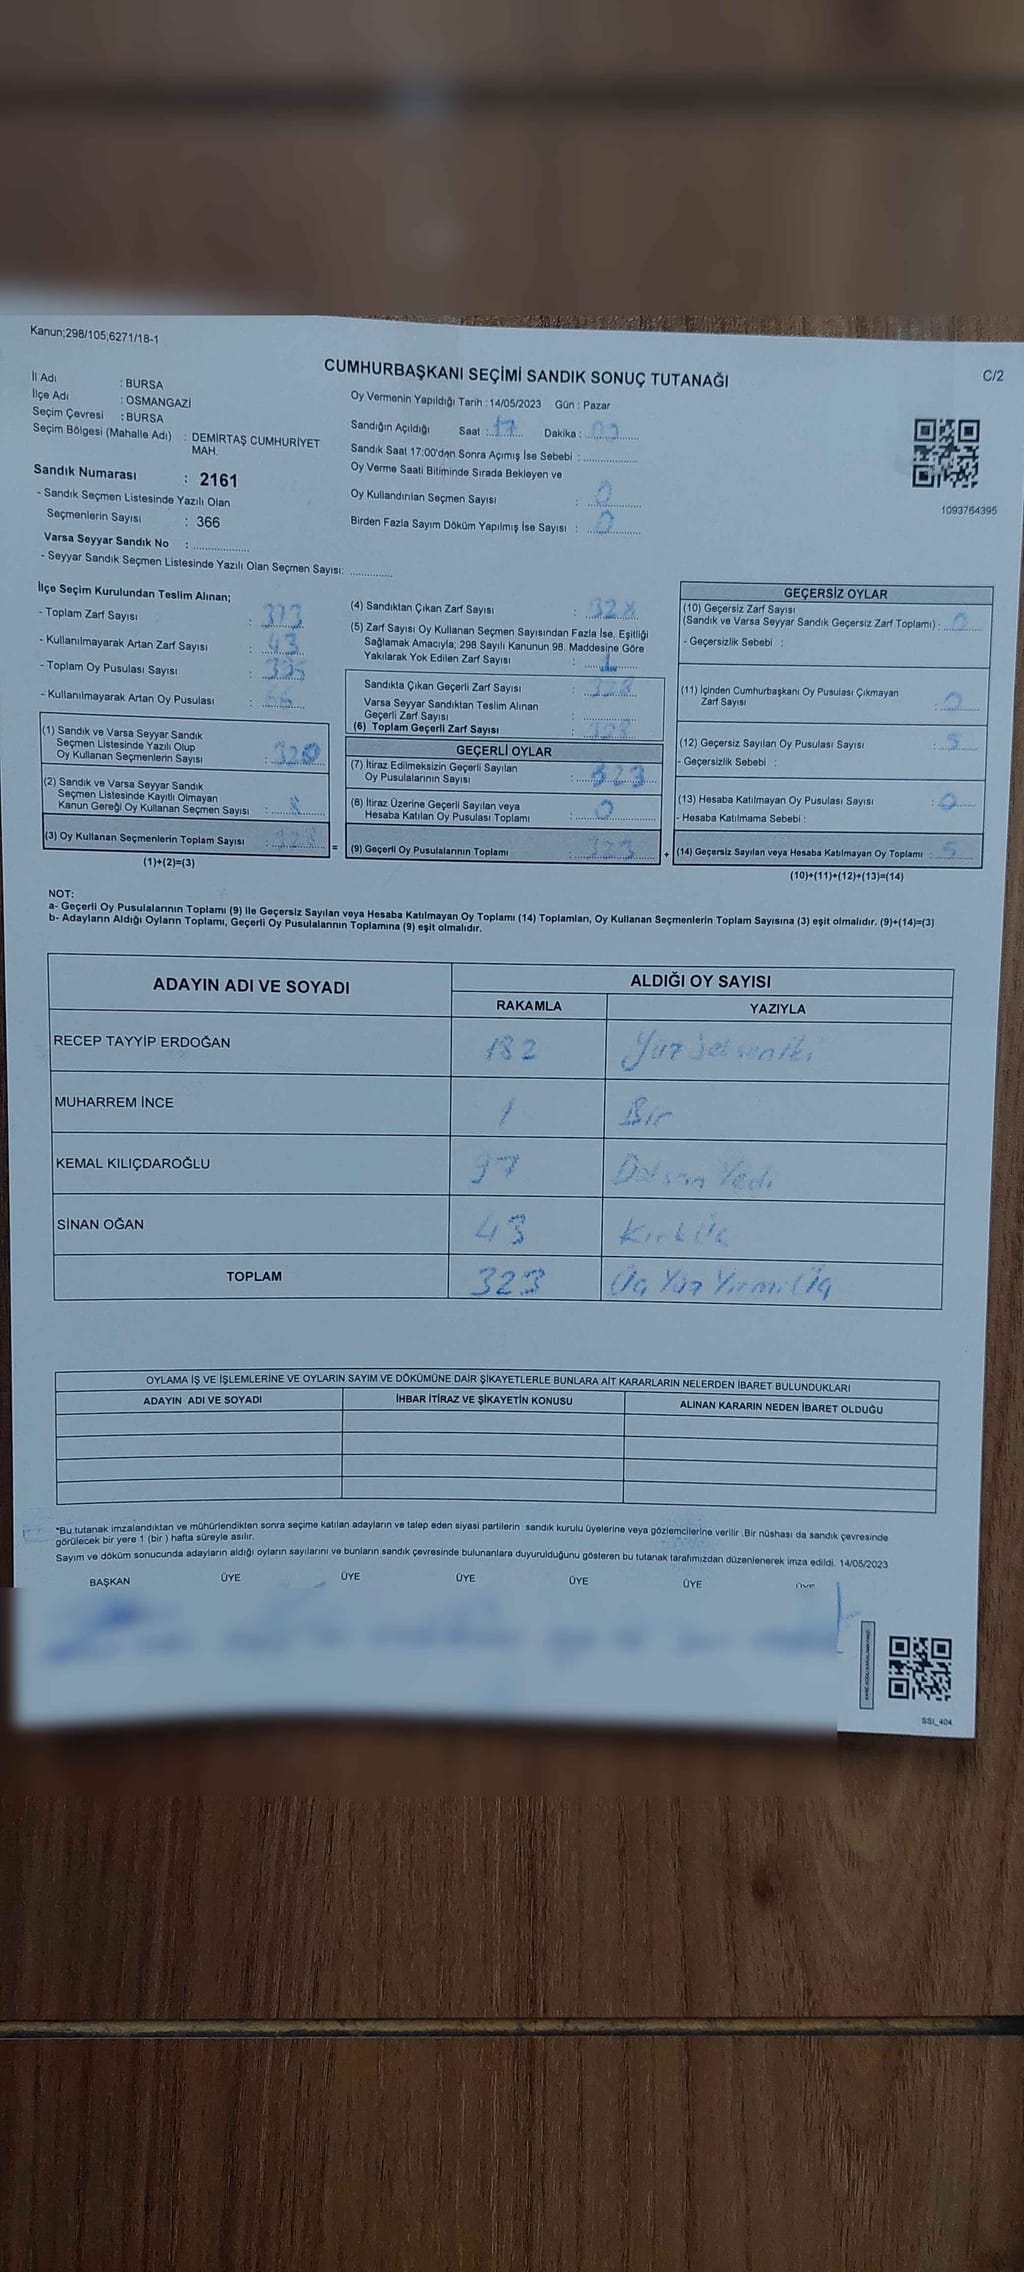 Kanun;298/105;6271/18-1
C/2
CUMHURBAŞKANI SEÇİMİ SANDIK SONUÇ TUTANAĞI
İl Adı : BURSA
İlçe Adı : OSMANGAZİ
Seçim Çevresi : BURSA
Seçim Bölgesi (Mahalle Adı) : DEMİRTAŞ CUMHURİYET
MAH.
Sandık Numarası : 2161
- Sandık Seçmen Listesinde Yazılı Olan
Seçmenlerin Sayısı : 366
Varsa Seyyar Sandık No : ..................
- Seyyar Sandık Seçmen Listesinde Yazılı Olan Seçmen Sayısı: .............
Oy Vermenin Yapıldığı Tarih : 14/05/2023 Gün : Pazar
Sandığın Açıldığı Saat : 17 Dakika :
Sandık Saat 17:00'den Sonra Açımış İse Sebebi : ................
Oy Verme Saati Bitiminde Sırada Bekleyen ve
Oy Kullandırılan Seçmen Sayısı : 0
Birden Fazla Sayım Döküm Yapılmış İse Sayısı : 0
1093764395
İlçe Seçim Kurulundan Teslim Alınan;
- Toplam Zarf Sayısı : 373
- Kullanılmayarak Artan Zarf Sayısı : 43
- Toplam Oy Pusulası Sayısı :
- Kullanılmayarak Artan Oy Pusulası :
(1) Sandık ve Varsa Seyyar Sandık
Seçmen Listesinde Yazılı Olup
Oy Kullanan Seçmenlerin Sayısı : 320
(2) Sandık ve Varsa Seyyar Sandık
Seçmen Listesinde Kayıtlı Olmayan
Kanun Gereği Oy Kullanan Seçmen Sayısı : 8
(3) Oy Kullanan Seçmenlerin Toplam Sayısı : 328
(1)+(2)=(3)
(4) Sandıktan Çıkan Zarf Sayısı : 328
(5) Zarf Sayısı Oy Kullanan Seçmen Sayısından Fazla İse, Eşitliği
Sağlamak Amacıyla; 298 Sayılı Kanunun 98. Maddesine Göre
Yakılarak Yok Edilen Zarf Sayısı :
Sandıkta Çıkan Geçerli Zarf Sayısı : 328
Varsa Seyyar Sandıktan Teslim Alınan
Geçerli Zarf Sayısı : ................
(6) Toplam Geçerli Zarf Sayısı : 328
GEÇERLİ OYLAR
(7) İtiraz Edilmeksizin Geçerli Sayılan
Oy Pusulalarının Sayısı : 323
(8) İtiraz Üzerine Geçerli Sayılan veya
Hesaba Katılan Oy Pusulası Toplamı : 0
= (9) Geçerli Oy Pusulalarının Toplamı : 323 +
GEÇERSİZ OYLAR
(10) Geçersiz Zarf Sayısı
(Sandık ve Varsa Seyyar Sandık Geçersiz Zarf Toplamı) : 0
- Geçersizlik Sebebi :
(11) İçinden Cumhurbaşkanı Oy Pusulası Çıkmayan
Zarf Sayısı : 0
(12) Geçersiz Sayılan Oy Pusulası Sayısı : 5
- Geçersizlik Sebebi :
(13) Hesaba Katılmayan Oy Pusulası Sayısı : 0
- Hesaba Katılmama Sebebi :
(14) Geçersiz Sayılan veya Hesaba Katılmayan Oy Toplamı : 5
(10)+(11)+(12)+(13)=(14)
NOT:
a- Geçerli Oy Pusulalarının Toplamı (9) ile Geçersiz Sayılan veya Hesaba Katılmayan Oy Toplamı (14) Toplamları, Oy Kullanan Seçmenlerin Toplam Sayısına (3) eşit olmalıdır. (9)+(14)=(3)
b- Adayların Aldığı Oyların Toplamı, Geçerli Oy Pusulalarının Toplamına (9) eşit olmalıdır.
ADAYIN ADI VE SOYADI ALDIĞI OY SAYISI
RAKAMLA YAZIYLA
RECEP TAYYİP ERDOĞAN 182 Yüz Seksen İki
MUHARREM İNCE 1 Bir
KEMAL KILIÇDAROĞLU 97 Doksan Yedi
SİNAN OĞAN 43 Kırk Üç
TOPLAM 323 Üç Yüz Yirmi Üç
OYLAMA İŞ VE İŞLEMLERİNE VE OYLARIN SAYIM VE DÖKÜMÜNE DAİR ŞİKAYETLERLE BUNLARA AİT KARARLARIN NELERDEN İBARET BULUNDUKLARI
ADAYIN ADI VE SOYADI İHBAR İTİRAZ VE ŞİKAYETİN KONUSU ALINAN KARARIN NEDEN İBARET OLDUĞU
*Bu tutanak imzalandıktan ve mühürlendikten sonra seçime katılan adayların ve talep eden siyasi partilerin sandık kurulu üyelerine veya gözlemcilerine verilir .Bir nüshası da sandık çevresinde
görülecek bir yere 1 (bir ) hafta süreyle asılır.
Sayım ve döküm sonucunda adayların aldığı oyların sayılarını ve bunların sandık çevresinde bulunanlara duyurulduğunu gösteren bu tutanak tarafımızdan düzenlenerek imza edildi. 14/05/2023
BAŞKAN ÜYE ÜYE ÜYE ÜYE ÜYE ÜYE
SSI_404